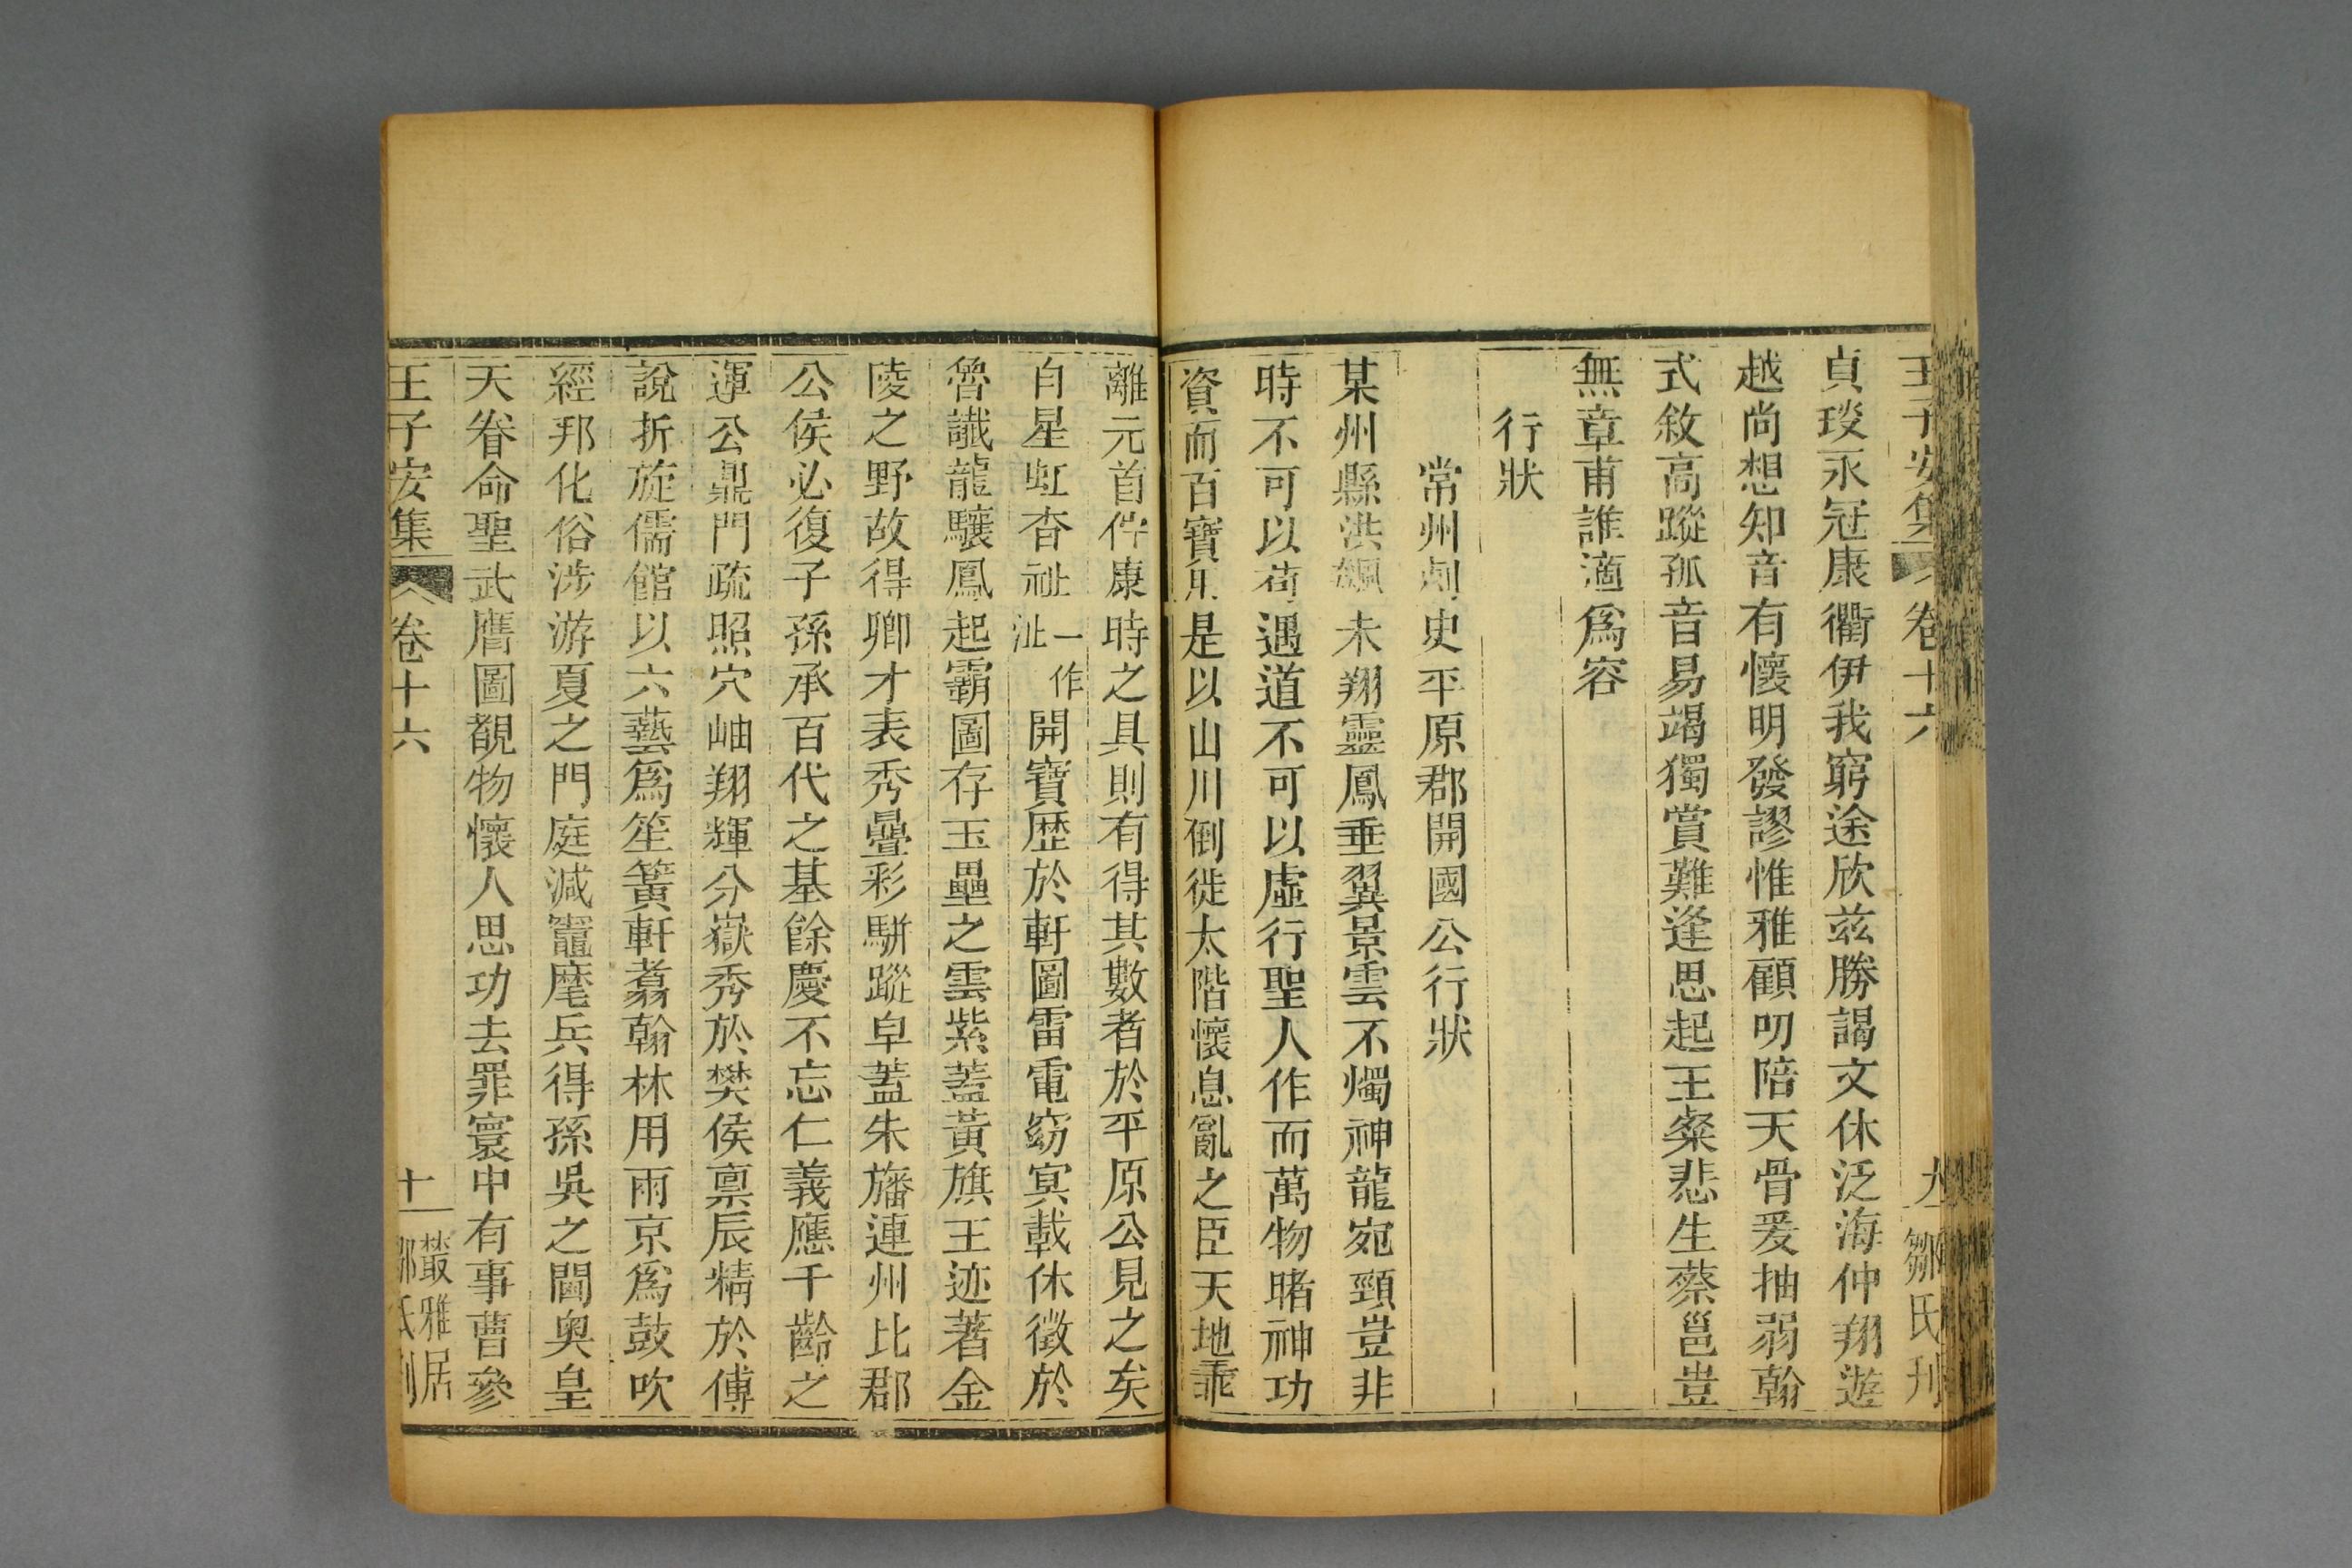 王子安集 卷十六 九 鄒氏刊
貞琰永冠康衢伊我窮途欣兹勝謁文休泛海仲翔遊
越尚想知音有懷明發謬惟雅顧叨陪天骨爰抽弱翰
式敘高蹤孤音易竭獨賞難逢思起王粲悲生蔡邕豈
無章甫誰適爲容
行狀
常州刺史平原郡開國公行狀
某州縣洪飆未翔靈鳳垂翼景雲不燭神龍宛頸豈非
時不可以苟遇道不可以虛行聖人作而萬物睹神功
資而百寶用是以山川倒徙太階懷息亂之臣天地乖
離元首佇康時之具則有得其數者於平原公見之矣
自星虹杳祉一作沚開寶歴於軒圖雷電窈冥載休徵於
魯讖龍驤鳳起霸圖存玉壘之雲紫蓋黃旗王迹著金
陵之野故得卿才表秀疊彩駢蹤皁蓋朱旛連州比郡
公侯必復子孫承百代之基餘慶不忘仁義應千齡之
運公鼎門疏照穴岫翔輝分嶽秀於樊侯禀辰精於傅
說折旋儒館以六藝爲笙簧軒翥翰林用雨京爲鼓吹
經邦化俗涉游夏之門庭減竈麾兵得孫吳之閫奥皇
天眷命聖武膺圖覩物懷人思功去罪寰中有事曹參
王子安集 卷十六 十 叢雅居鄒氏刊